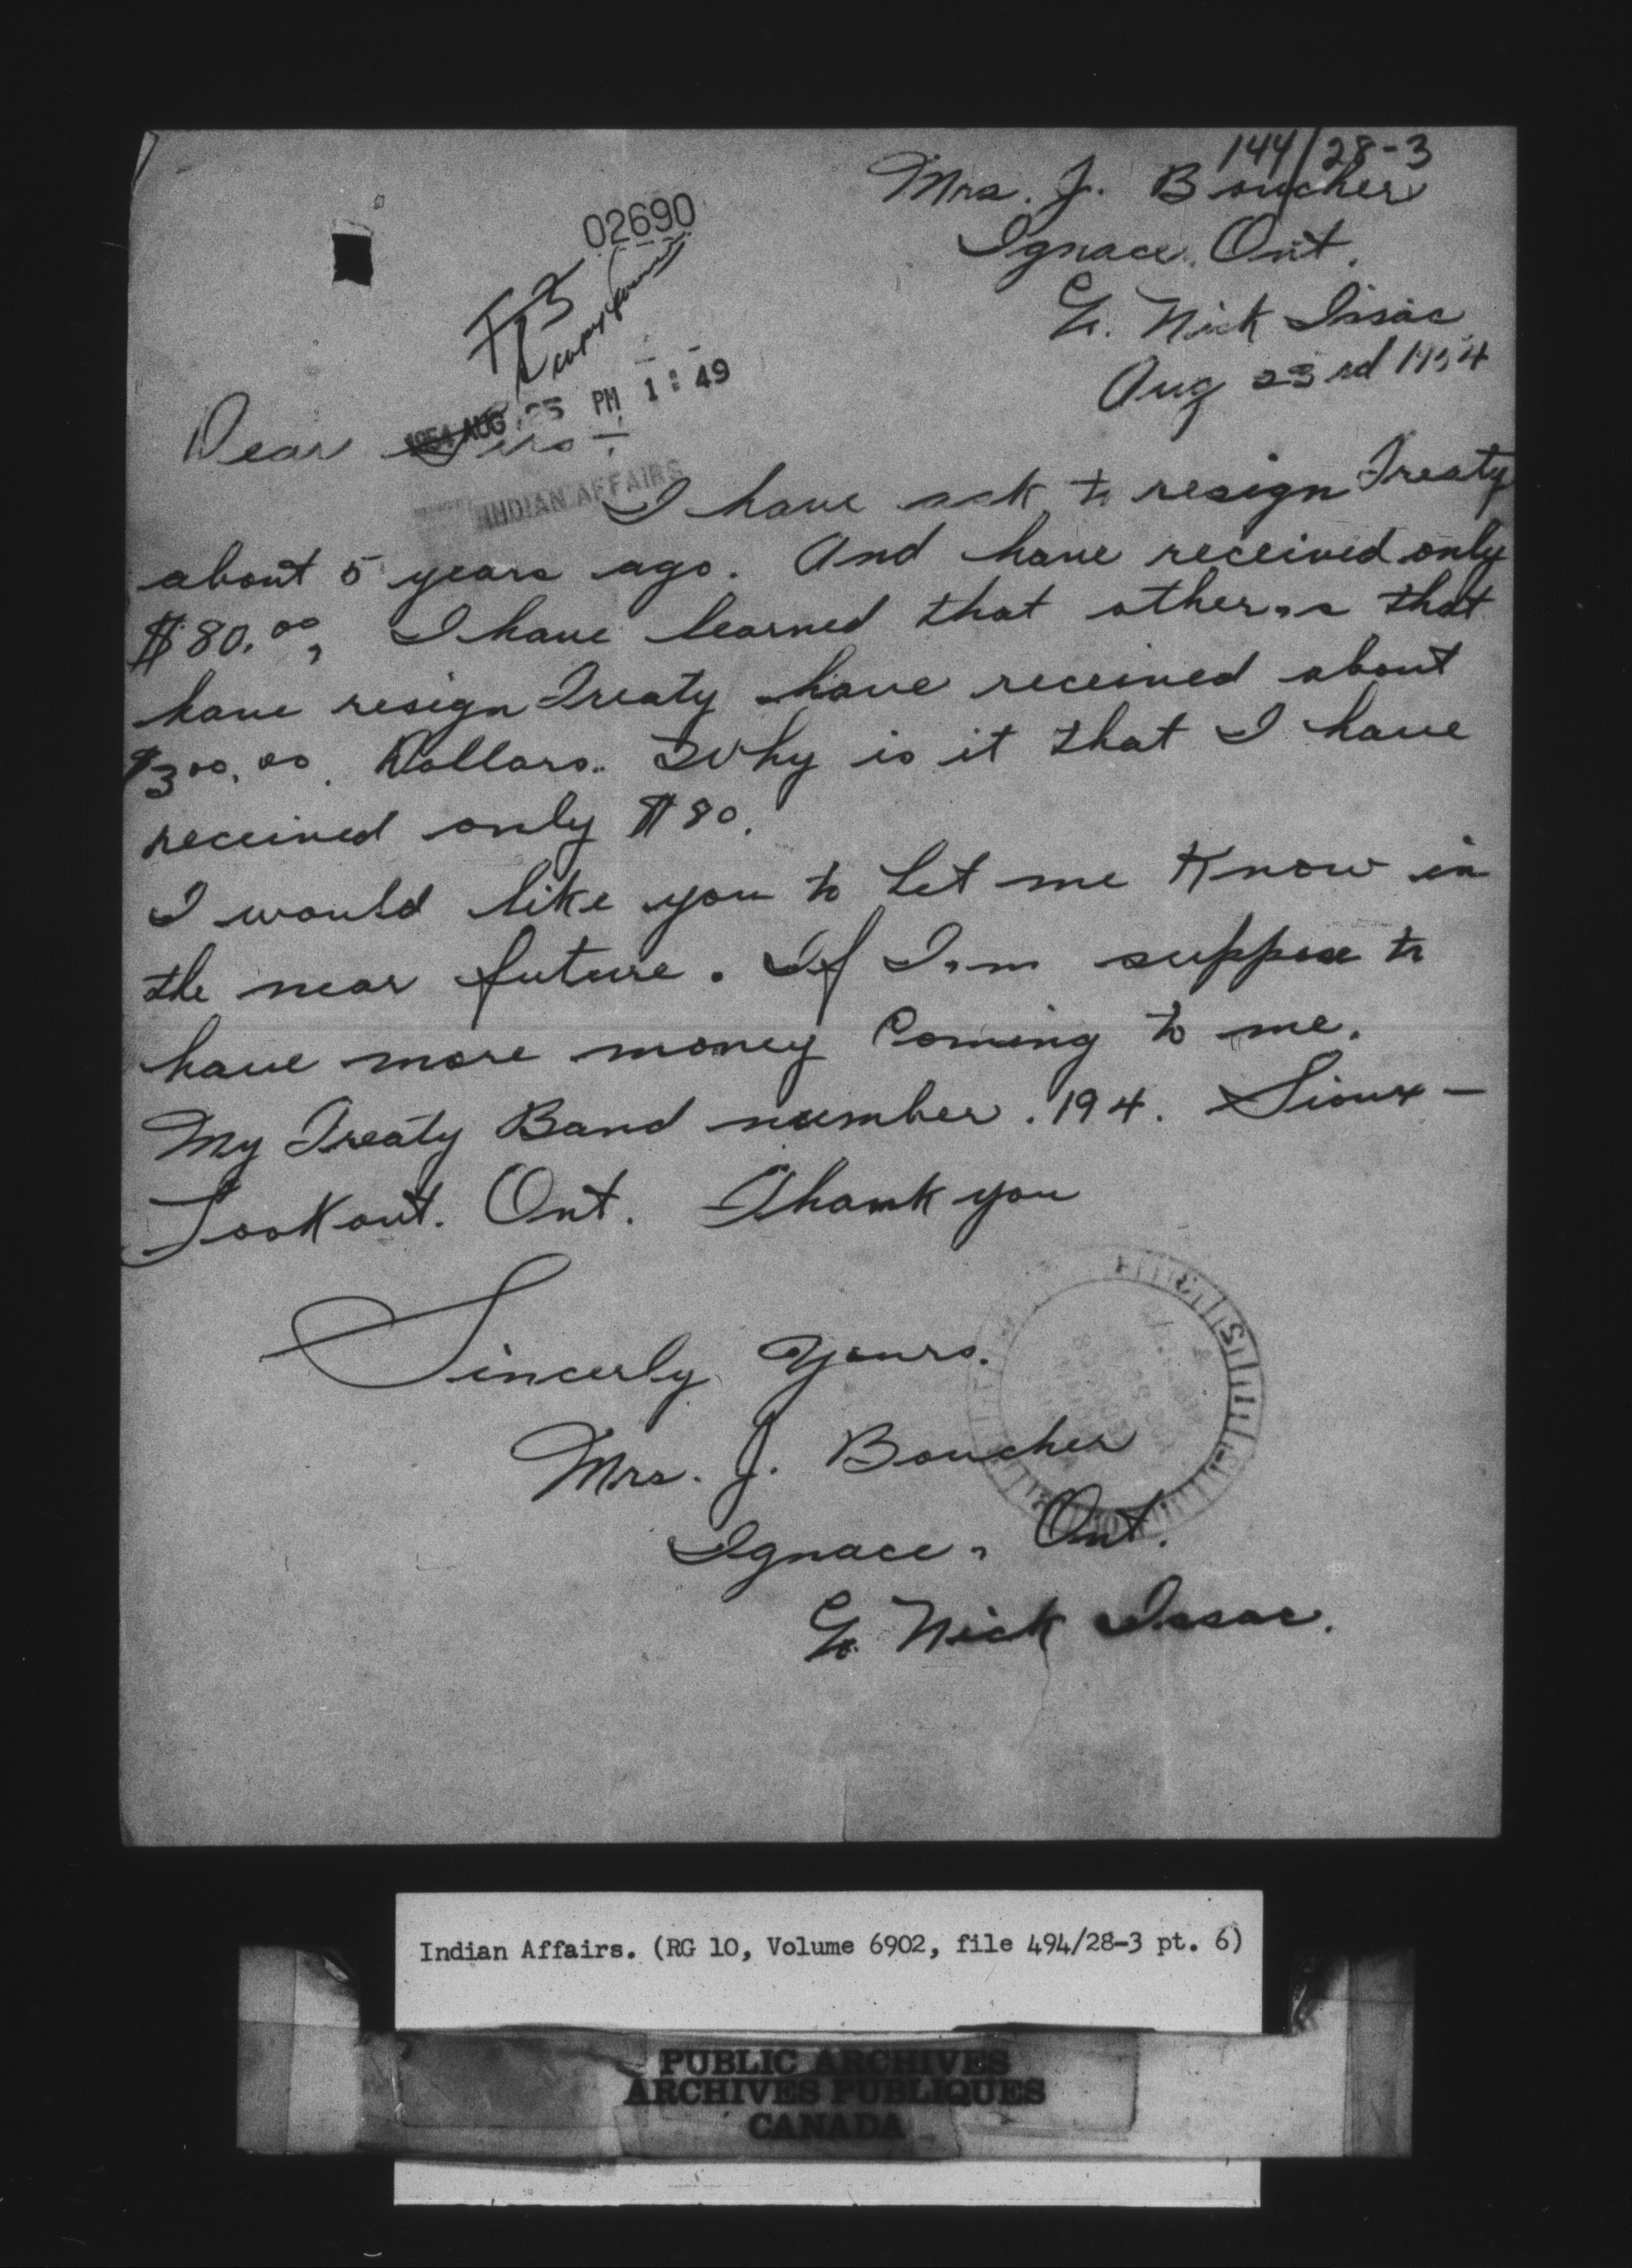 144/28-3
Mrs. J. Boucher
Ignace. Ont.
℅. Nick Issac
Aug 23rd 1954
02690
1954 AUG 25 PM 1:49
INDIAN AFFAIRS
Dear Sirs :-
I have ask to resign Treaty
about 5 years ago. And have received only
$80.00, I have learned that other,s that
have resign Treaty have received about
$300.00. Dollars. Why is it that I have
received only $80.
I would like you to let me Know in
the near future. If I,m suppose to
have more money Coming to me.
My Treaty Band number. 194. Sioux-
Lookout. Ont. Thank you
Sincerly Yours.
Mrs. J. Boucher
Ignace, Ont.
℅ Nick Issac.
Indian Affairs. (RG 10, Volume 6902, file 494/28-3 pt. 6)
PUBLIC ARCHIVES
ARCHIVES PUBLIQUES
CANADA